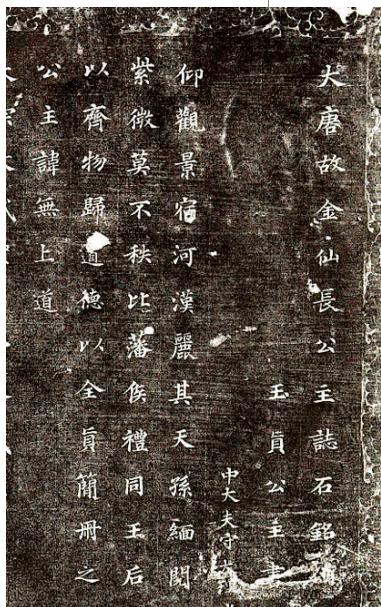 大唐故金仙長公主誌石銘并
玉眞公主書
中大夫守大
仰觀景宿河漢麗其天孫緬閱
紫微莫不秩比藩侯禮同王后
以齊物歸道德以全眞簡冊之
公主諱無上道